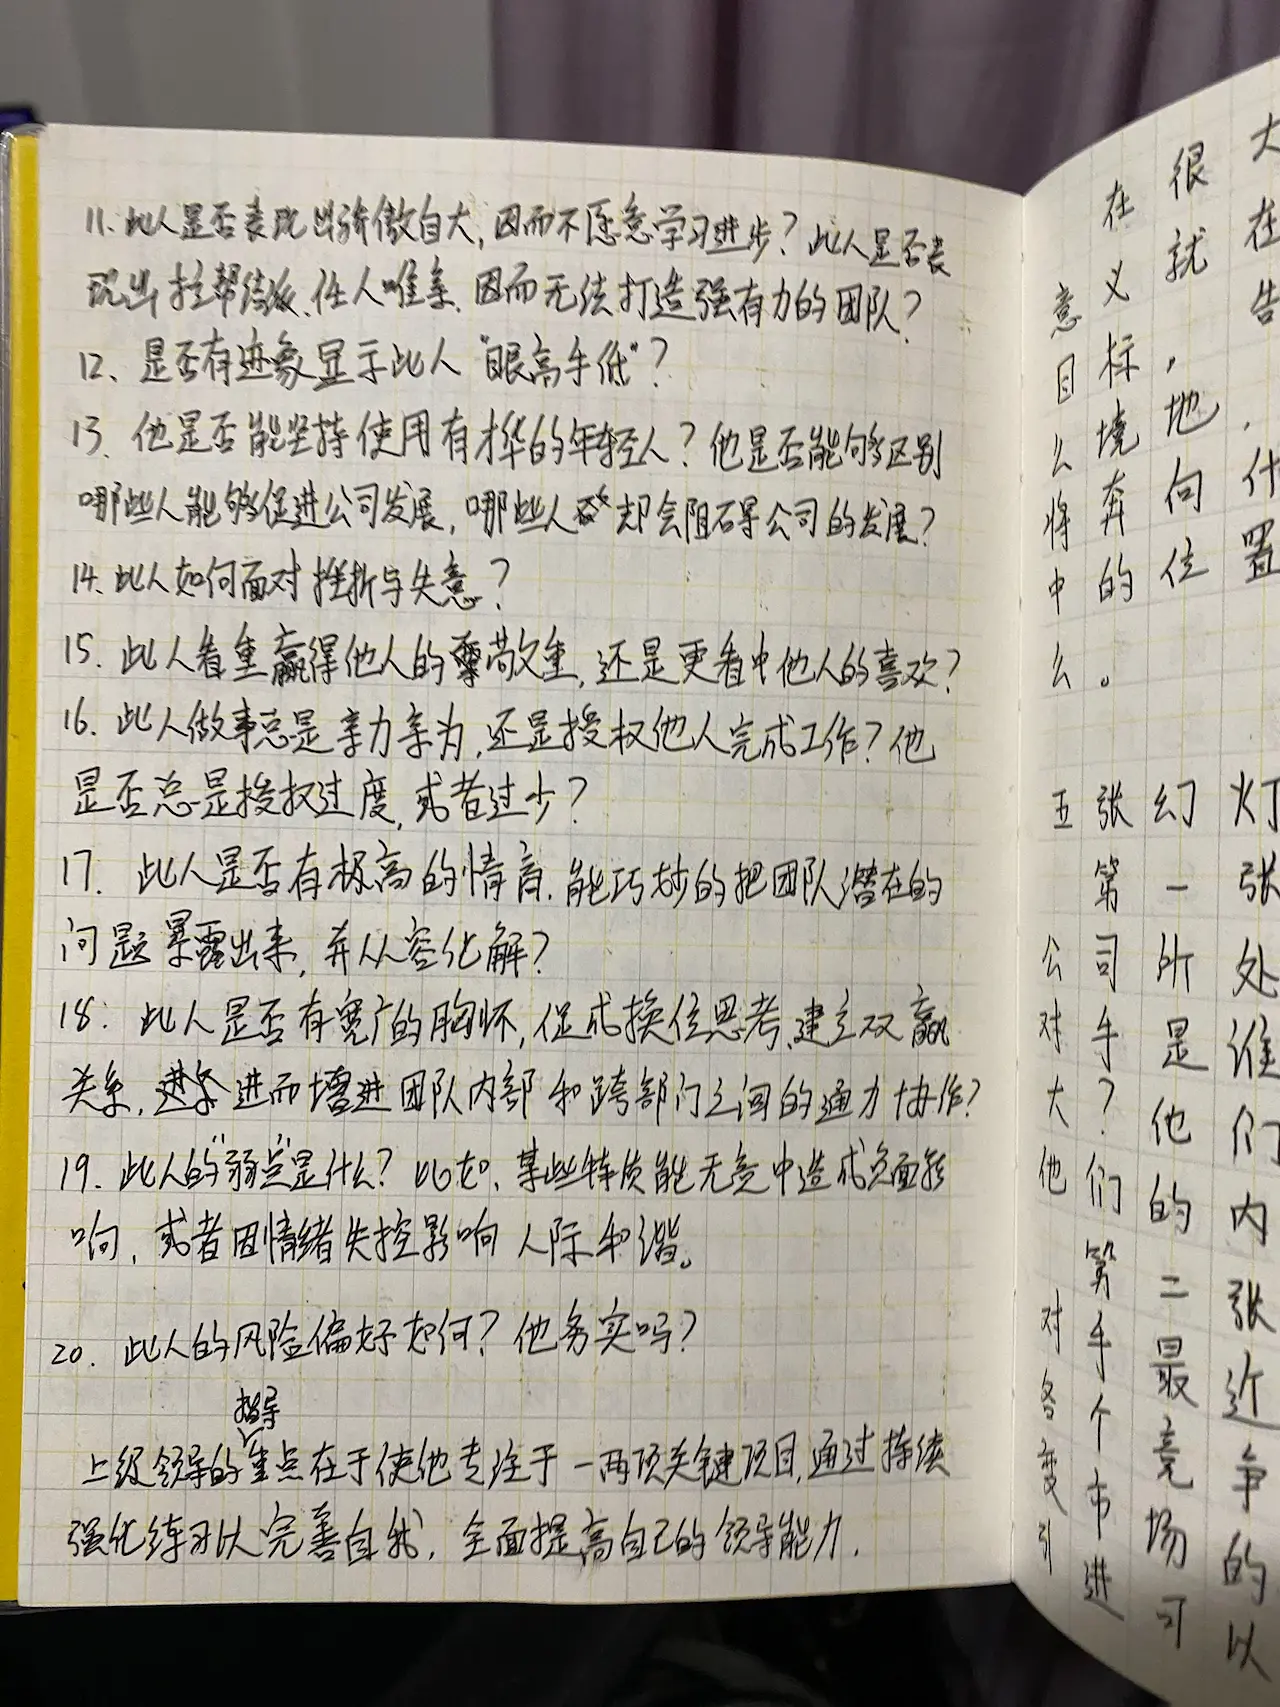 11. 此人是否表现出骄傲自大，因而不愿意学习进步？此人是否表
现出拉帮结派、任人唯亲，因而无法打造强有力的团队？
12、是否有迹象显示此人“眼高手低”？
13、他是否能坚持使用有才华的年轻人？他是否能够区别
哪些人能够促进公司发展，哪些人却会阻碍公司的发展？
14、此人如何面对挫折与失意？
15. 此人看重赢得他人的敬重，还是更看中他人的喜欢？
16、此人做事总是亲力亲为，还是授权他人完成工作？他
是否总是授权过度，或者过少？
17. 此人是否有极高的情商，能巧妙的把团队潜在的
问题暴露出来，并从容化解？
18: 此人是否有宽广的胸怀，促成换位思考、建立双赢
关系，进而增进团队内部和跨部门之间的通力协作？
19、此人的“弱点”是什么？比如、某些特质能无意中造成负面影
响，或者因情绪失控影响人际和谐。
20. 此人的风险偏好如何？他务实吗？
上级领导的指导重点在于使他专注于一两项关键项目，通过持续
强化练习以完善自我，全面提高自己的领导能力.
在很大
意义就在
目标，告
么境地，
将奔向什
中的位置
么。
五张幻灯
第一张
公司所处
对手是谁
大？他们
他们的内
第二张
对手最近
各个竞争
变市场的
引进可以